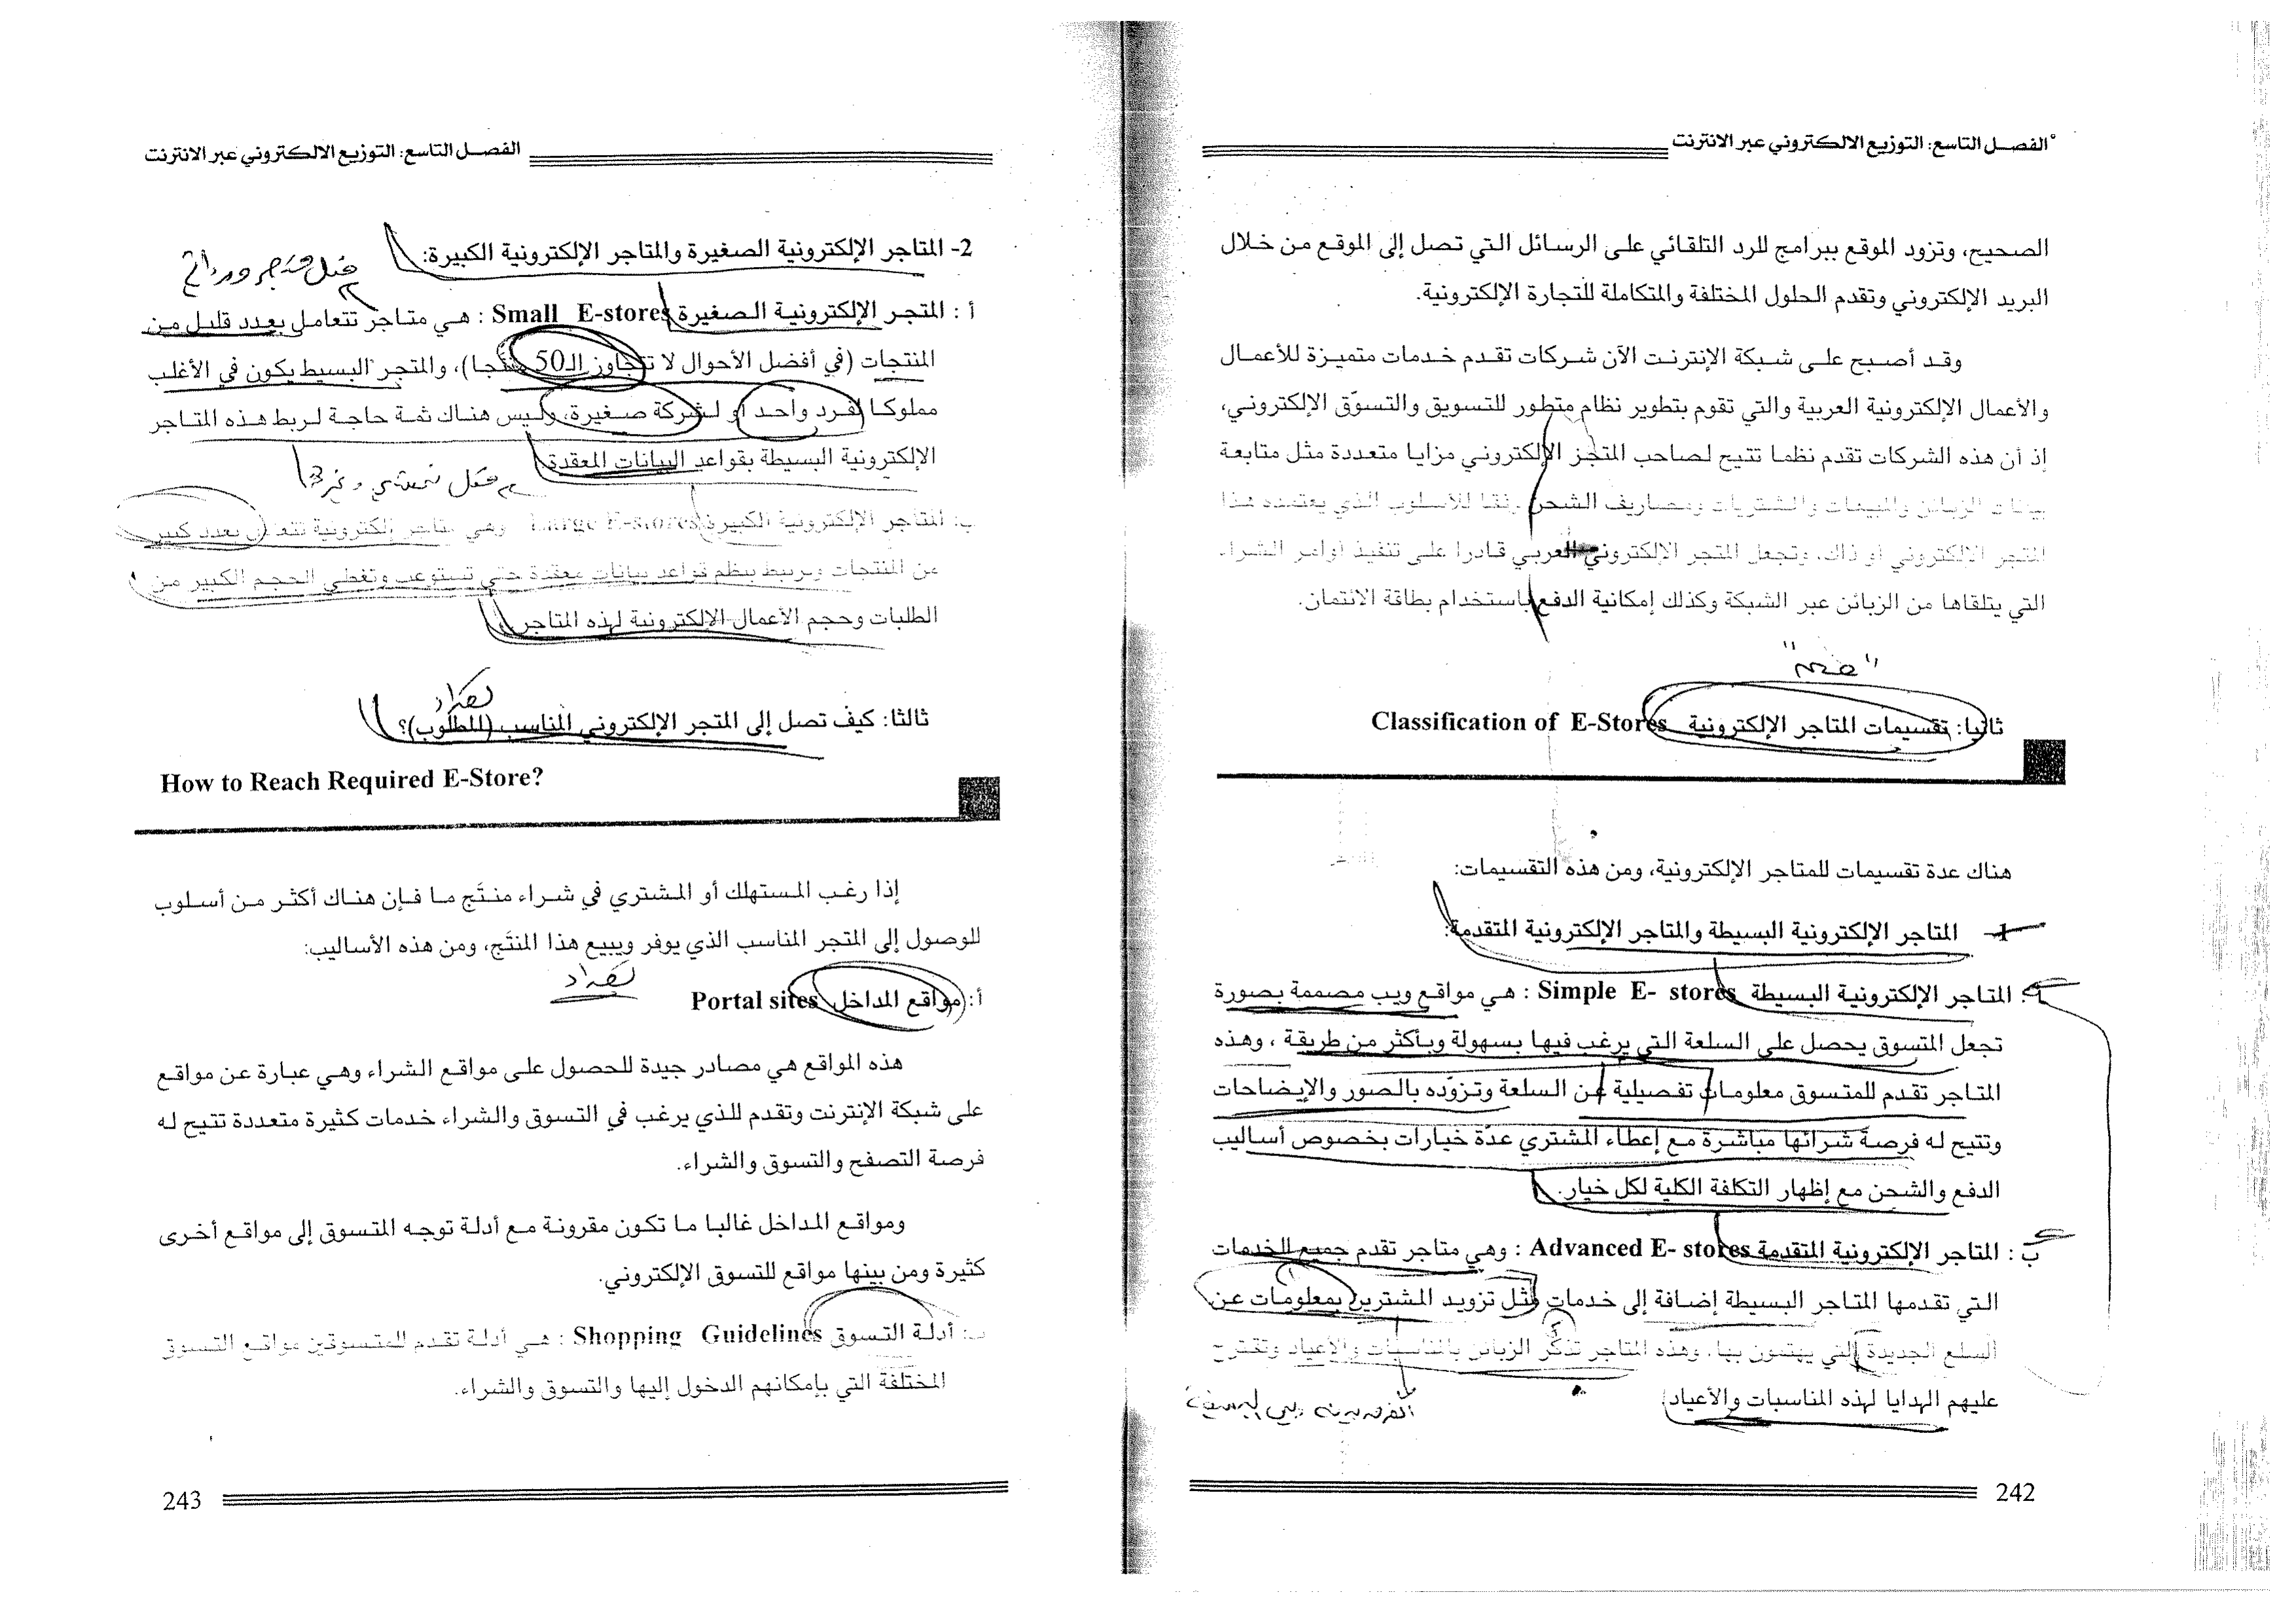 الفصل التاسع: التوزيع الالكتروني عبر الانترنت
الصحيح، وتزود الموقع ببرامج للرد التلقائي على الرسائل التي تصل إلى الموقع من خلال
البريد الإلكتروني وتقدم الحلول المختلفة والمتكاملة للتجارة الإلكترونية.
وقد أصبح على شبكة الإنترنت الآن شركات تقدم خدمات متميزة للأعمال
والأعمال الإلكترونية العربية والتي تقوم بتطوير نظام متطور للتسويق والتسوّق الإلكتروني،
إذ أن هذه الشركات تقدم نظما تتيح لصاحب المتجر الإلكتروني مزايا متعددة مثل متابعة
بيانات الزبائن والمبيعات والمشتريات ومصاريف الشحن وفقا للأسلوب الذي يعتمده هذا
المتجر الالكتروني أو ذاك، وتجعل المتجر الإلكتروني العربي قادرا على تنفيذ أوامر الشراء
التي يتلقاها من الزبائن عبر الشبكة وكذلك إمكانية الدفع باستخدام بطاقة الائتمان.
ثانيا: تقسيمات المتاجر الإلكترونية Classification of E-Stores
هناك عدة تقسيمات للمتاجر الإلكترونية، ومن هذه التقسيمات:
1- المتاجر الإلكترونية البسيطة والمتاجر الإلكترونية المتقدمة:
أ: المتاجر الإلكترونية البسيطة Simple E- stores : هي مواقع ويب مصممة بصورة
تجعل المتسوق يحصل على السلعة التي يرغب فيها بسهولة وبأكثر من طريقة ، وهذه
المتاجر تقدم للمتسوق معلومات تفصيلية عن السلعة وتزوّده بالصور والإيضاحات
وتتيح له فرصة شرائها مباشرة مع إعطاء المشتري عدّة خيارات بخصوص أساليب
الدفع والشحن مع إظهار التكلفة الكلية لكل خيار.
ب : المتاجر الإلكترونية المتقدمة Advanced E- stores : وهي متاجر تقدم جميع الخدمات
التي تقدمها المتاجر البسيطة إضافة إلى خدمات مثل تزويد المشترين بمعلومات عن
السلع الجديدة التي يهتمون بها، وهذه المتاجر تذكّر الزبائن بالمناسبات والأعياد وتقترح
عليهم الهدايا لهذه المناسبات والأعياد.
242
الفصل التاسع: التوزيع الالكتروني عبر الانترنت
2- المتاجر الإلكترونية الصغيرة والمتاجر الإلكترونية الكبيرة:
أ : المتجر الإلكترونية الصغيرة Small E-stores : هي متاجر تتعامل بعدد قليل من
المنتجات (في أفضل الأحوال لا تتجاوز الـ50 منتجا)، والمتجر البسيط يكون في الأغلب
مملوكا لفرد واحد أو لشركة صغيرة، وليس هناك ثمة حاجة لربط هذه المتاجر
الإلكترونية البسيطة بقواعد البيانات المعقدة.
ب: المتاجر الإلكترونية الكبيرة Large E-stores وهي متاجر إلكترونية تتعامل بعدد كبير
من المنتجات وترتبط بنظم قواعد بيانات معقدة حتى تستوعب وتغطي الحجم الكبير من
الطلبات وحجم الأعمال الإلكترونية لهذه المتاجر.
ثالثا: كيف تصل إلى المتجر الإلكتروني المناسب (المطلوب)؟
How to Reach Required E-Store?
إذا رغب المستهلك أو المشتري في شراء منتَج ما فإن هناك أكثر من أسلوب
للوصول إلى المتجر المناسب الذي يوفر ويبيع هذا المنتَج، ومن هذه الأساليب:
تعداد
أ: مواقع المداخل Portal sites
هذه المواقع هي مصادر جيدة للحصول على مواقع الشراء وهي عبارة عن مواقع
على شبكة الإنترنت وتقدم للذي يرغب في التسوق والشراء خدمات كثيرة متعددة تتيح له
فرصة التصفح والتسوق والشراء.
ومواقع المداخل غالبا ما تكون مقرونة مع أدلة توجه المتسوق إلى مواقع أخرى
كثيرة ومن بينها مواقع للتسوق الإلكتروني.
ب: أدلة التسوق Shopping Guidelines : هي أدلة تقدم للمتسوقين مواقع التسوق
المختلفة التي بإمكانهم الدخول إليها والتسوق والشراء.
243